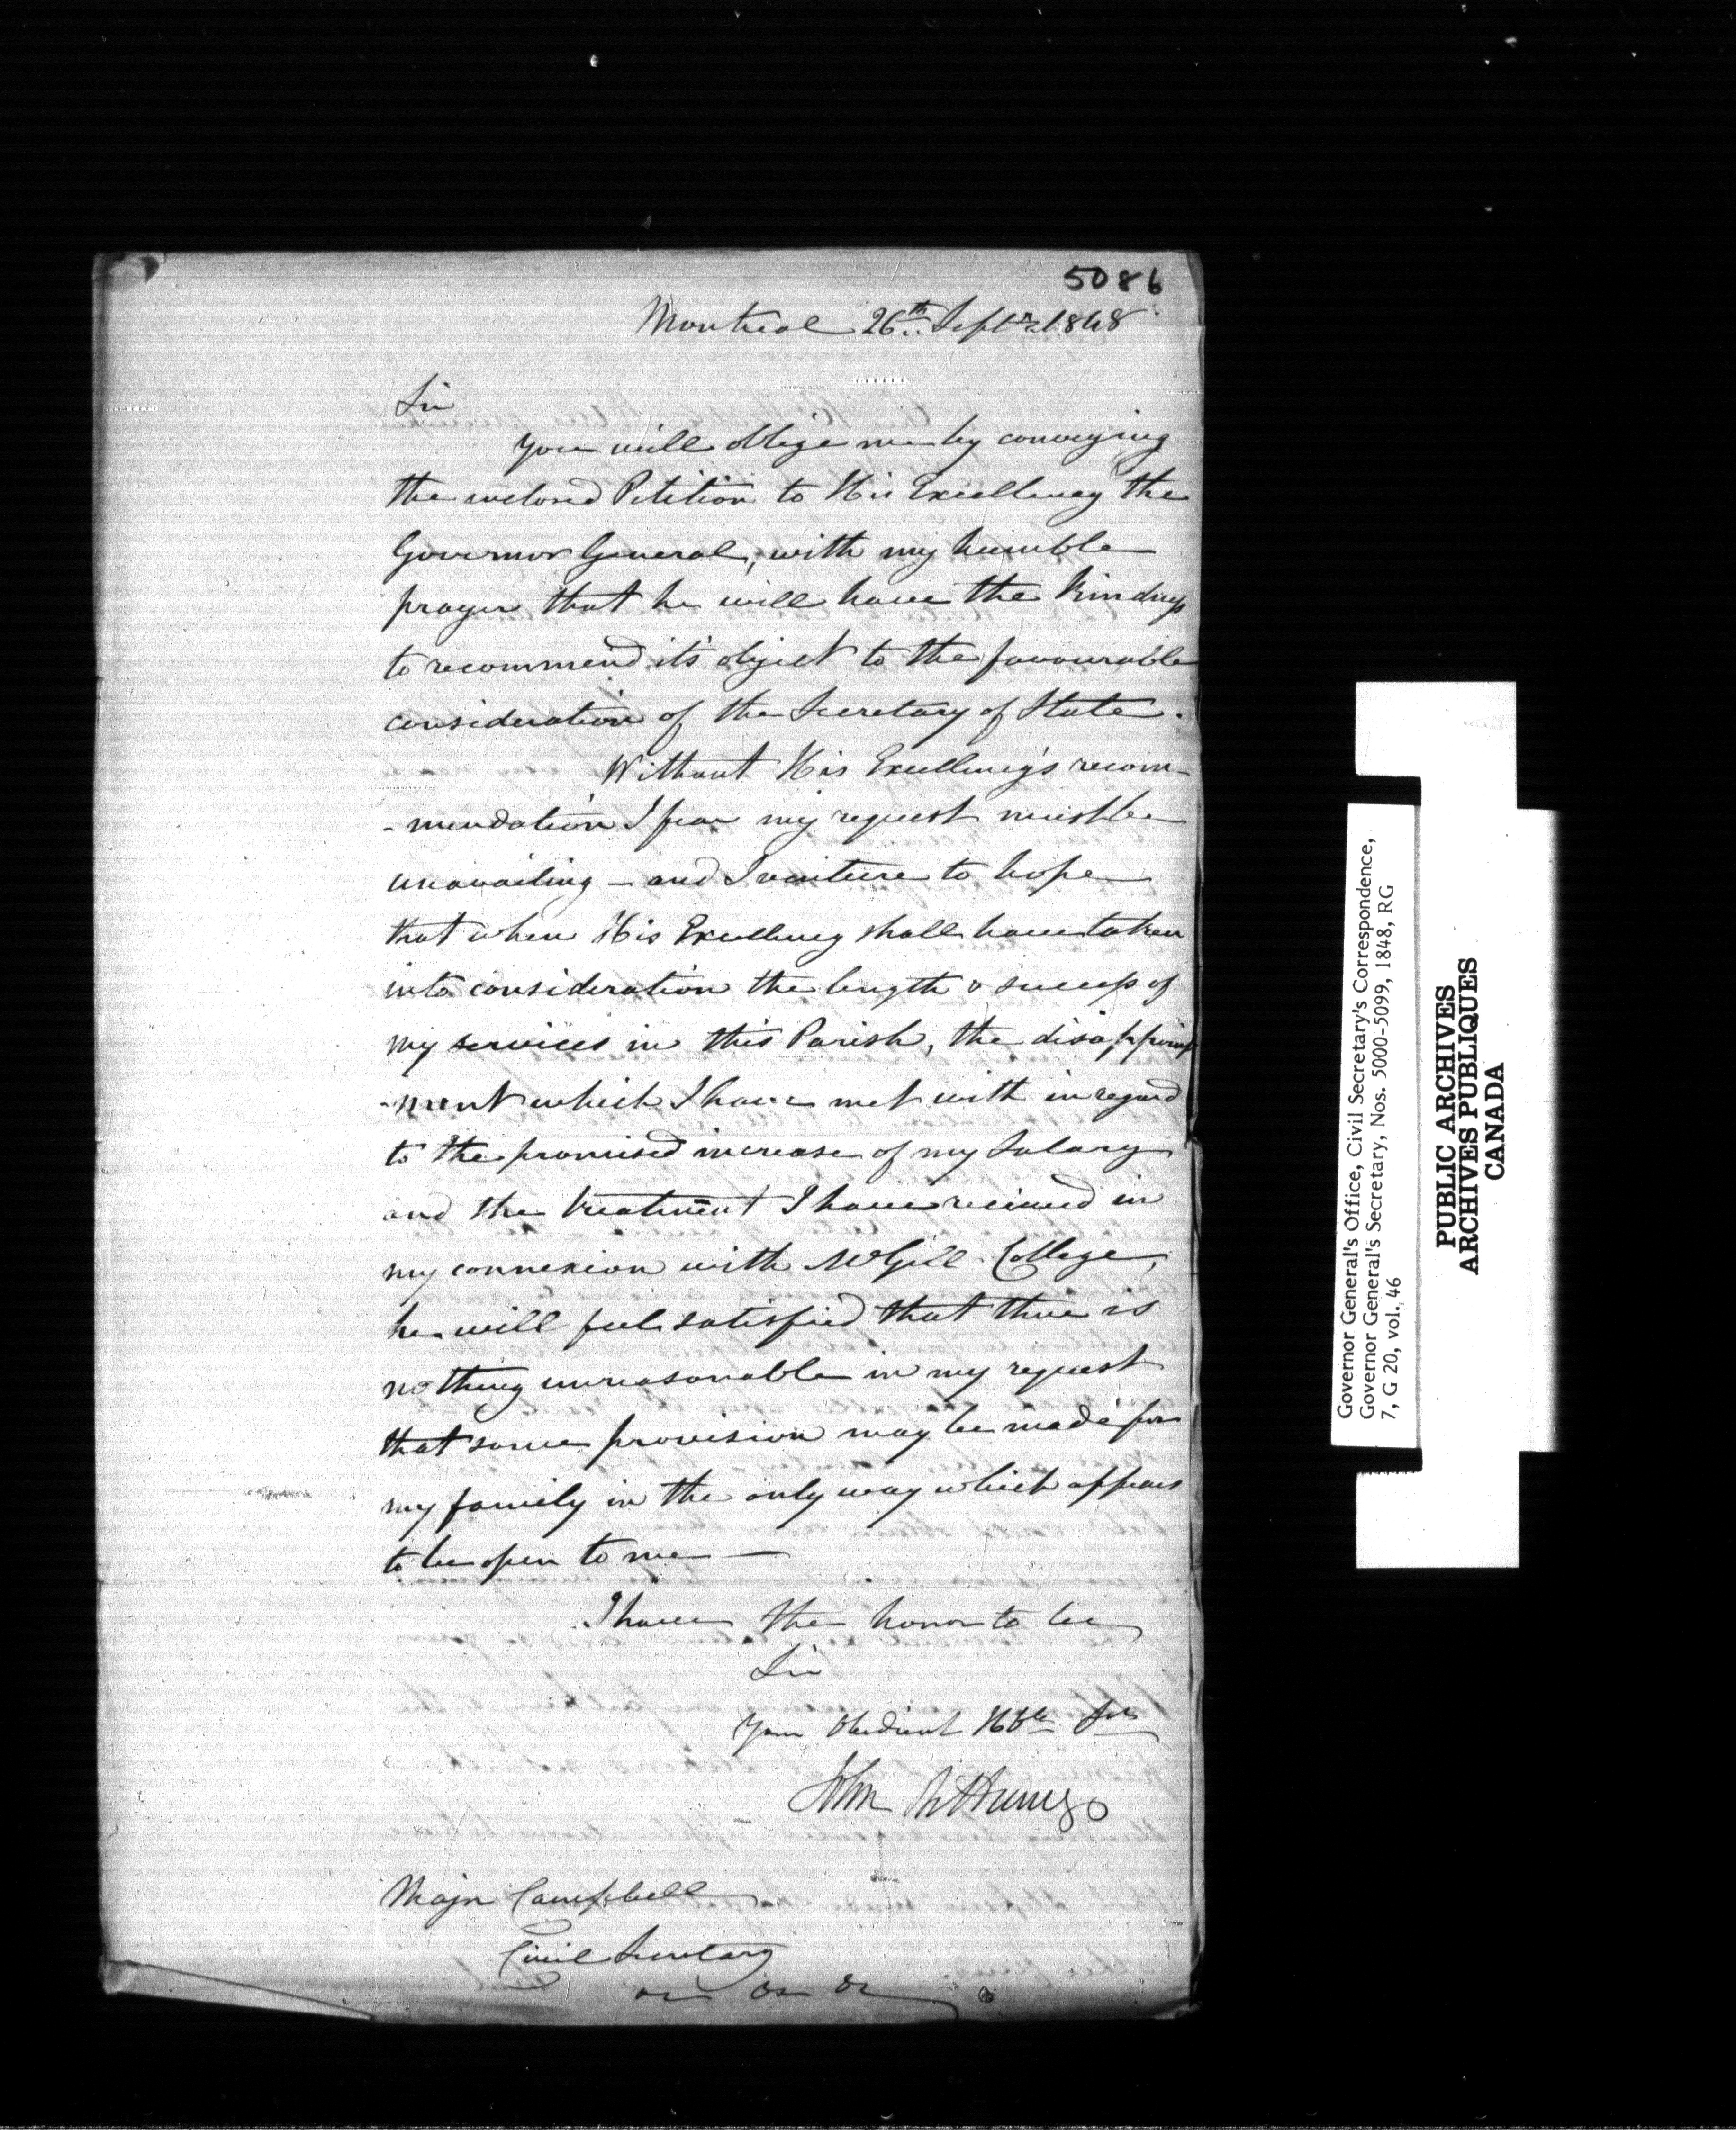 5086
Montreal 26th Septr 1848
Sir
You will oblige me by conveying
the inclosed Petition to His Excellency the
Governor General, with my humble
prayer that he will have the kindness
to recommend it's object to the favourable
consideration of the Secretary of State.
Without His Excellency's recom-
-mendation I fear my request must be
unavailing - and I venture to hope
that when His Excellency shall have taken
into consideration the length & success of
my services in this Parish, the disappoint
-ment which I have met with in regard
to the promised increase of my Salary
and the treatment I have received in
my connexion with McGill College,
he will feel satisfied that there is
nothing unreasonable in my request
that some provision may be made for
my family in the only way which appears
to be open to me —
I have the honor to be
Sir
Your Obedient Hble Svt
John Bethune
Major Campbell
Civil Secretary
&c &c &c
Governor General's Office, Civil Secretary's Correspondence,
Governor General's Secretary, Nos. 5000-5099, 1848, RG
7, G 20, vol. 46
PUBLIC ARCHIVES
ARCHIVES PUBLIQUES
CANADA